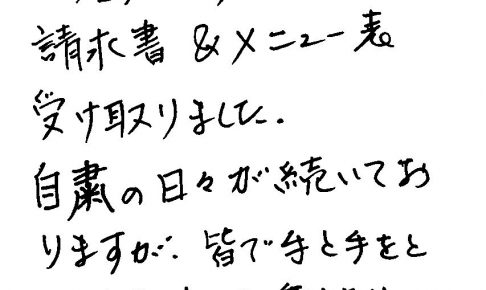 請求書&メニュー表
受け取りました.
自粛の日々が続いてお
りますが、皆で手と手をと